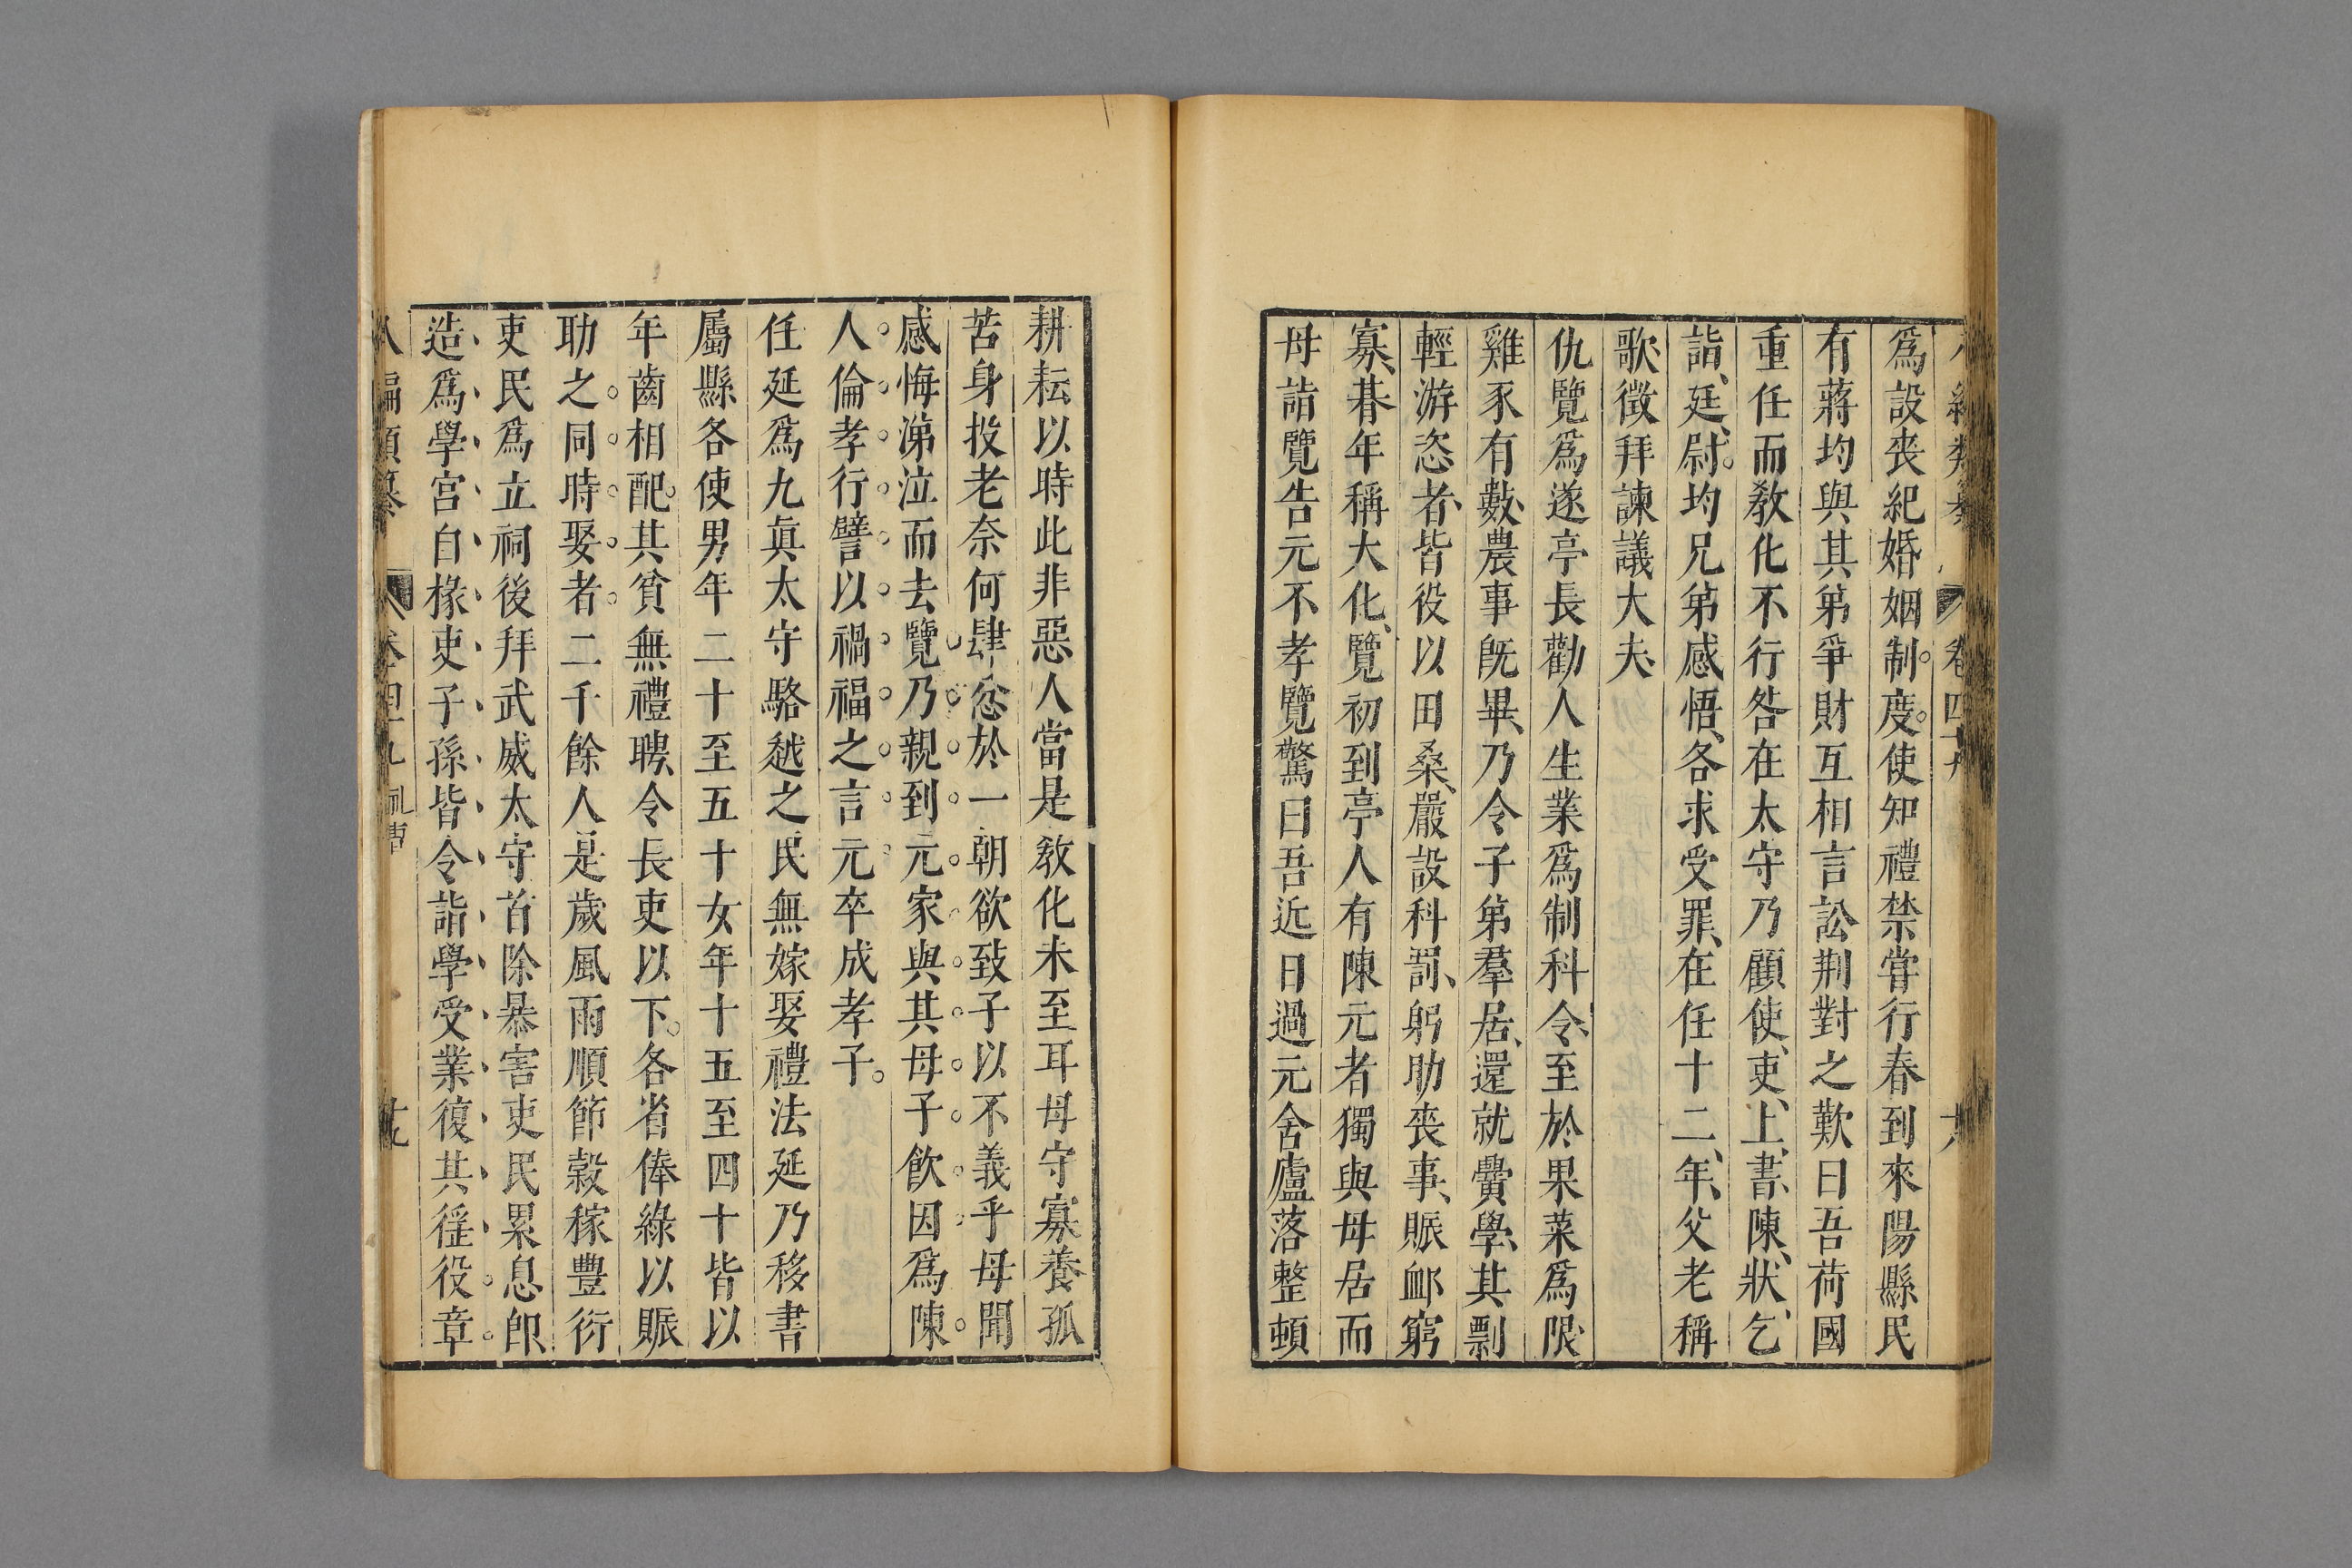 爲設喪紀婚姻制度使知禮禁甞行春到來陽縣民
有蔣均與其弟爭財互相言訟荆對之歎曰吾荷國
重任而敎化不行咎在太守乃顧使吏上書陳狀乞
詣廷尉均兄弟感悟各求受罪在任十二年父老稱
歌徵拜諫議大夫
仇覽爲遂亭長勸人生業爲制科令至於果菜爲限
雞豕有數農事旣畢乃令子弟羣居還就黌學其剽
輕游恣者皆役以田桑嚴設科罰躬助喪事賑䘏窮
寡朞年稱大化覽初到亭人有陳元者獨與母居而
母詣覽告元不孝覽驚曰吾近日過元舍廬落整頓
耕耘以時此非惡人當是敎化未至耳母守寡養孤
苦身投老奈何肆忿於一朝欲致子以不義乎母聞
感悔涕泣而去覽乃親到元家與其母子飮因爲陳
人倫孝行譬以禍福之言元卒成孝子
任延爲九眞太守駱越之民無嫁娶禮法延乃移書
屬縣各使男年二十至五十女年十五至四十皆以
年齒相配其貧無禮聘令長吏以下各省俸綠以賑
助之同時娶者二千餘人是歲風雨順節榖稼豊衍
吏民爲立祠後拜武威太守首除暴害吏民累息卽
造爲學宮自椽吏子孫皆令詣學受業復其徭役章